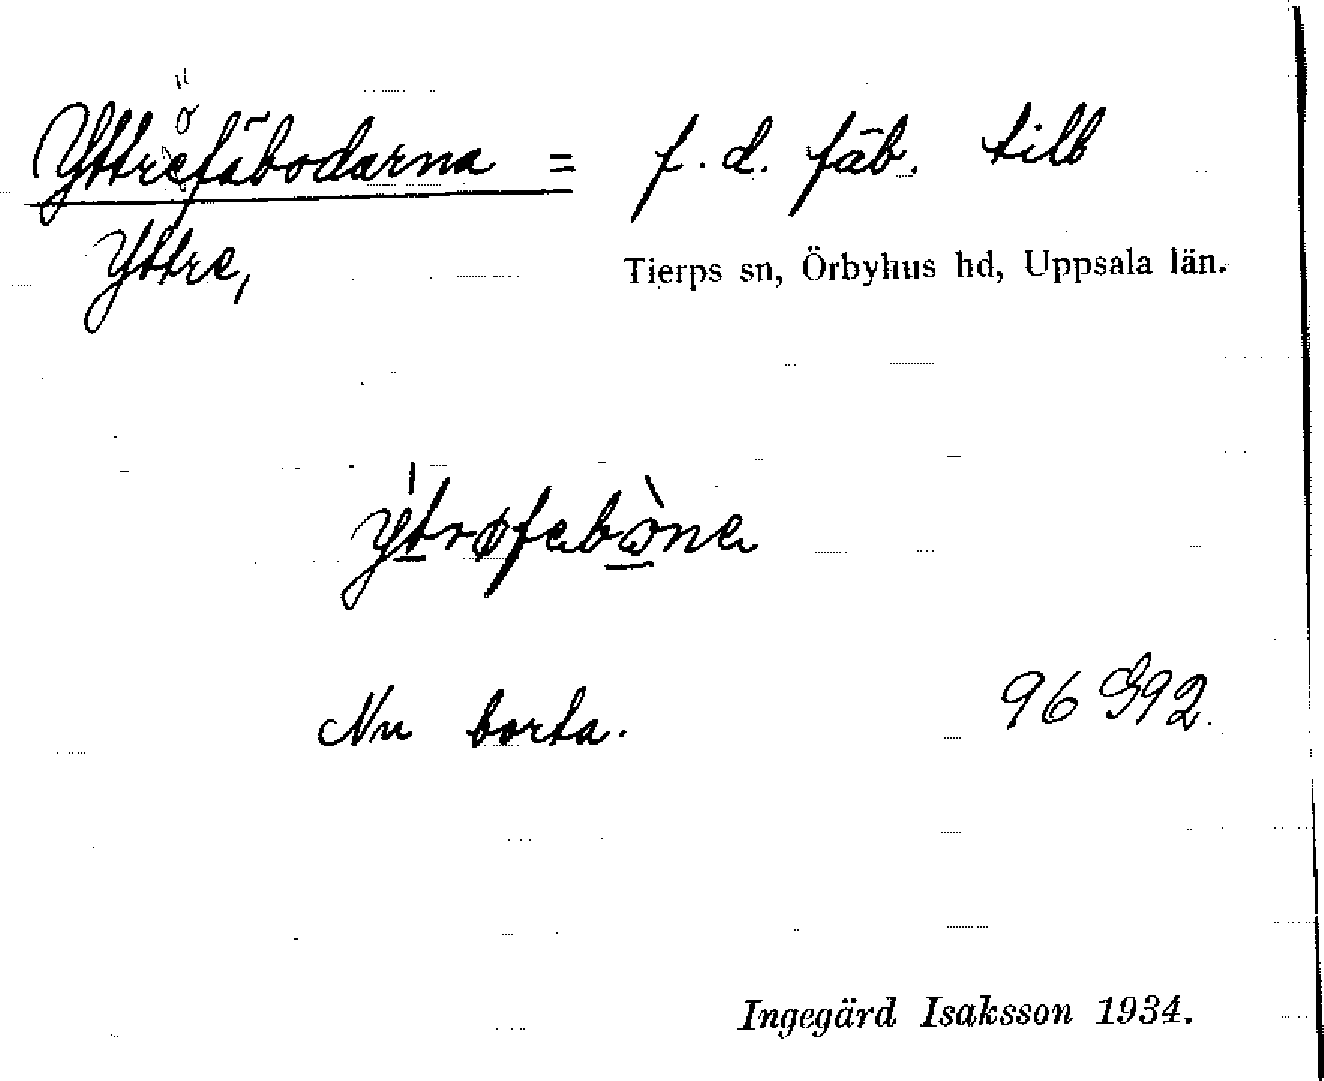 Yttrefäbodarna = f. d. fäb. till
Yttre,
Tierps sn, Örbyhus hd, Uppsala län.
Nu borta.
96 G92.
Ingegärd Isaksson 1934.